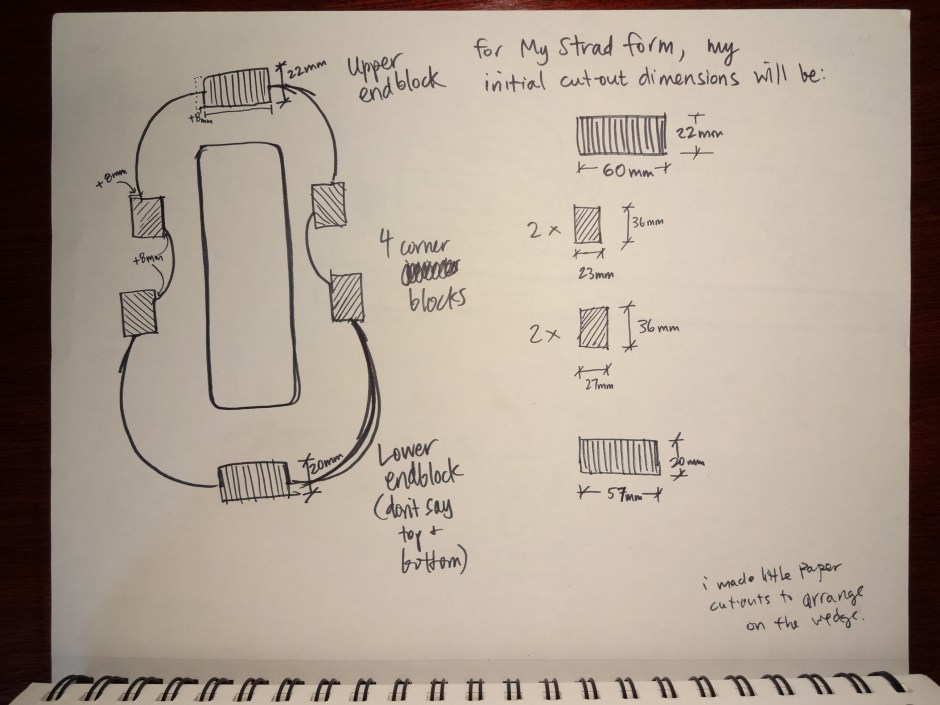 for My Strad form, my
initial cut-out dimensions will be:
Upper
endblock
22mm
+8mm
+8mm
+8mm
4 corner
blocks
20mm
Lower
endblock
(don't say
top +
bottom)
22mm
60mm
2 x
36mm
23mm
2 x
36mm
27mm
20mm
57mm
i made little paper
cut-outs to arrange
on the wedge.